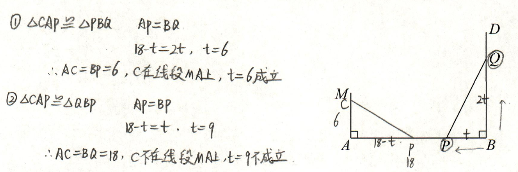 ① △CAP≌△PBQ AP=BQ
18-t=2t, t=6
∴AC=BP=6, C在线段MA上, t=6成立
② △CAP≌△QBP AP=BP
18-t=t. t=9
∴AC=BQ=18, C不在线段MA上, t=9不成立
D
Q
M
C
2t
6
A
18-t
P
P
t
B
18